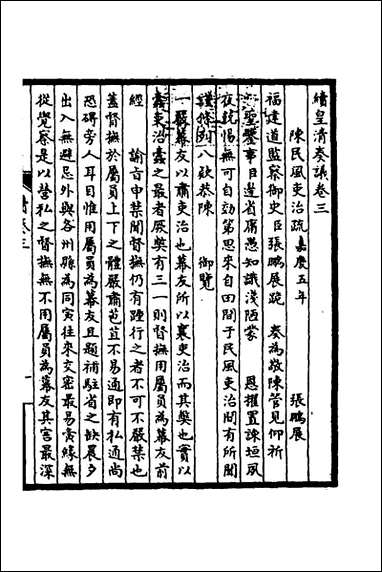 續皇清奏議卷三
陳民風吏治疏嘉慶五年 張鵬展
福建道監察御史臣張鵬展跪 奏為敬陳管見仰祈
聖鑒事臣邊省庸愚知識淺陋蒙 恩擢置諫垣夙
夜兢惕無可自効第思來自田間于民風吏治間有所聞
謹條列八欵恭陳 御覽
一嚴幕友以肅吏治也幕友所以襄吏治而其獘也實以
蠹吏治蠹之最者厥獘有三一則督撫用屬員為幕友前
經 諭旨申禁聞聞仍有踵行之者不可不嚴禁也
蓋督撫於屬員上下之體嚴肅苞苴不易通即有私通尚
恐碍旁人耳目惟用屬員為幕友且題補駐省之缺晨夕
出入無避忌外與各州縣為同寅往來交密最易夤緣無
從覺察是以營私之督撫無不用屬員為幕友其害最深
卷三
一